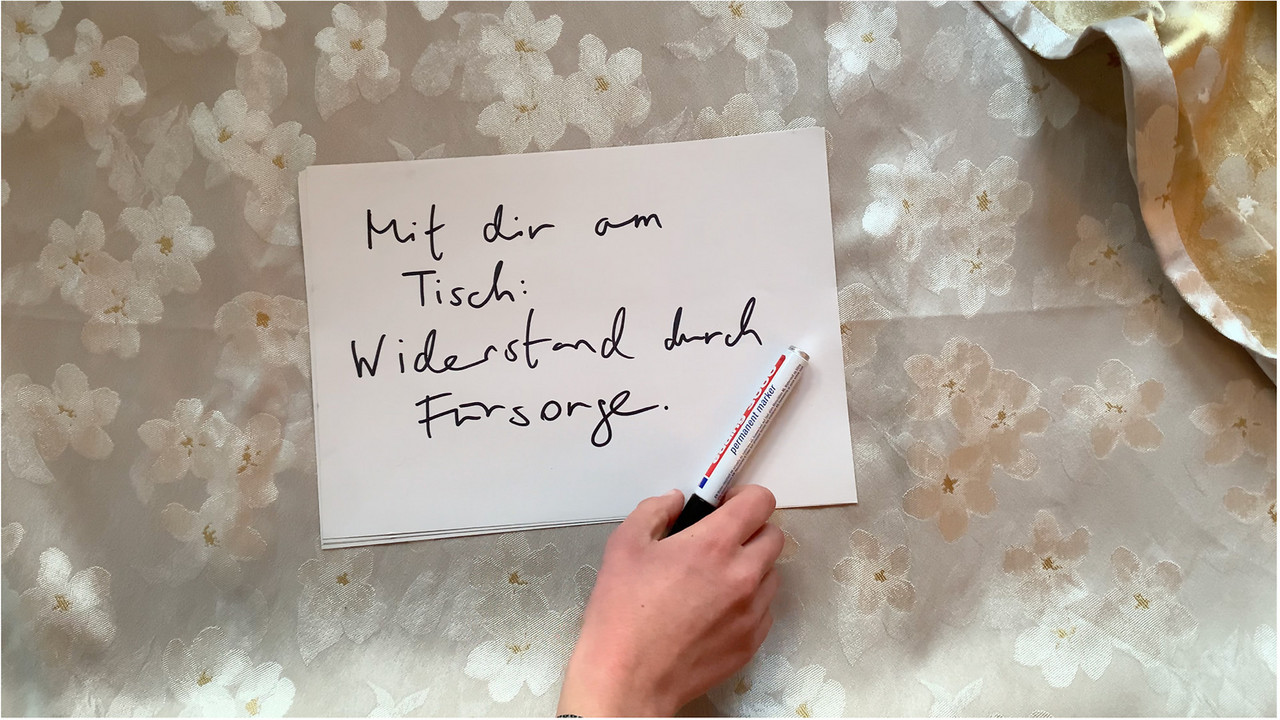 Mit dir am
Tisch:
Widerstand durch
Fürsorge.
permanent marker